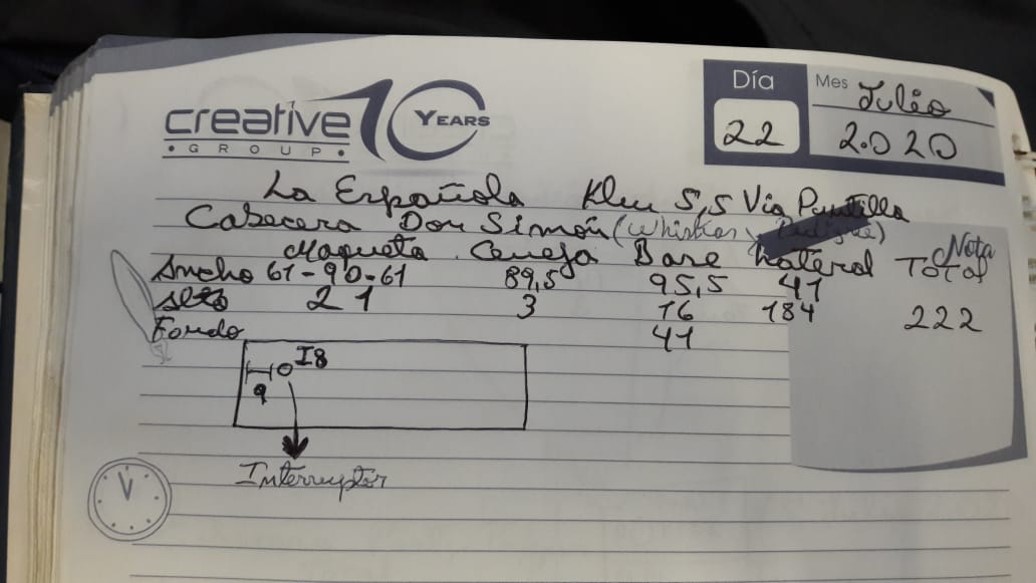 creative 10 YEARS
GROUP
Día 22 Mes Julio
2.020
La Española Klm 5,5 Vía Puntilla
Cabecera Don Simón (Whiskas y Pedigree)
Nota
Maqueta Ceneja Base Lateral TOTAL
Ancho 61-90-61 89,5 95,5 41
Alto 21 3 16 184 222
Fondo 41
I8
9
Interruptor